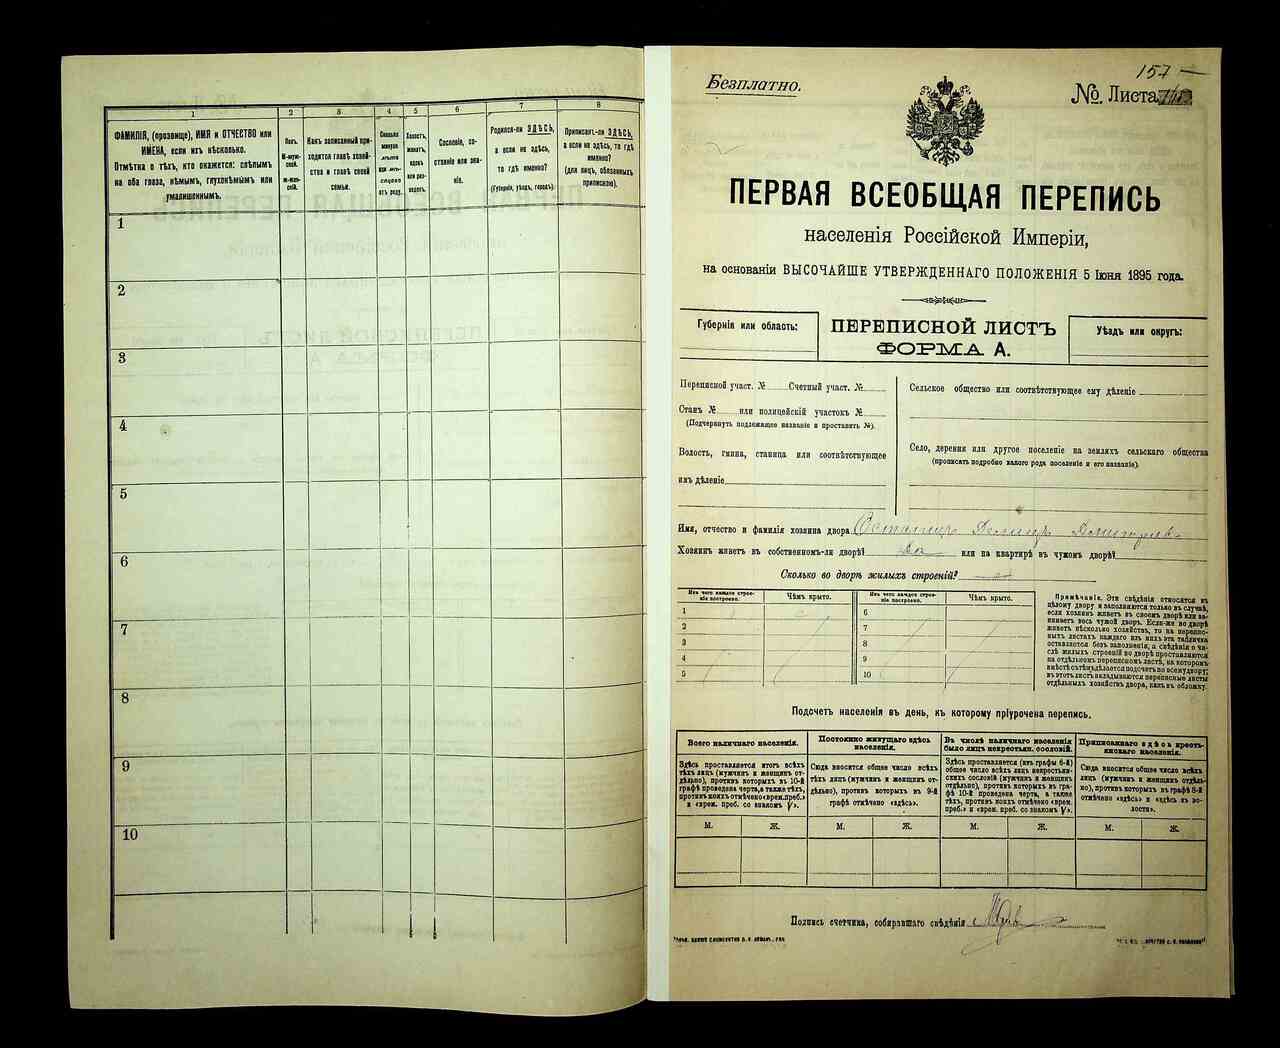 1
2
3
4
5
6
7
8
ФАМИЛІЯ, (прозвище), ИМЯ и ОТЧЕСТВО или
ИМЕНА, если ихъ нѣсколько.
Отмѣтка о тѣхъ, кто окажется: слѣпымъ
на оба глаза, нѣмымъ, глухонѣмымъ или
умалишеннымъ.
Полъ.
М-муж-
ской.
Ж-жен-
скій.
Какъ записанный при-
ходится главѣ хозяй-
ства и главѣ своей
семьи.
Сколько
минуло
лѣтъ
или мѣ-
сяцевъ
отъ роду.
Холостъ,
женатъ,
вдовъ
или раз-
веденъ.
Сословіе, со-
стояніе или зва-
ніе.
Родился-ли ЗДѢСЬ,
а если не здѣсь,
то гдѣ именно?
(Губернія, уѣздъ, городъ).
Приписанъ-ли ЗДѢСЬ,
а если не здѣсь, то гдѣ
именно?
(для лицъ, обязанныхъ
припискою).
1
2
3
4
5
6
7
8
9
10
157 —
Безплатно.
№ Листа
ПЕРВАЯ ВСЕОБЩАЯ ПЕРЕПИСЬ
населенія Россійской Имперіи,
на основаніи ВЫСОЧАЙШЕ УТВЕРЖДЕННАГО ПОЛОЖЕНІЯ 5 Іюня 1895 года.
Губернія или область:
ПЕРЕПИСНОЙ ЛИСТЪ
ФОРМА А.
Уѣздъ или округъ:
Переписной участ. № Счетный участ. №
Станъ № или полицейскій участокъ №
(Подчеркнуть подлежащее названіе и проставить №).
Волость, гмина, станица или соотвѣтствующее
имъ дѣленіе
Сельское общество или соотвѣтствующее ему дѣленіе
Село, деревня или другое поселеніе на земляхъ сельскаго общества
(прописать подробно какого рода поселеніе и его названіе).
Имя, отчество и фамилія хозяина двора
Хозяинъ живетъ въ собственномъ-ли дворѣ? Да или на квартирѣ въ чужомъ дворѣ?
Сколько во дворѣ жилыхъ строеній?
Изъ чего каждое строе-
ніе построено.
Чѣмъ крыто.
Изъ чего каждое строе-
ніе построено.
Чѣмъ крыто.
1
2
3
4
5
6
7
8
9
10
Примѣчаніе. Эти свѣдѣнія относятся къ
цѣлому двору и заполняются только въ случаѣ,
если хозяинъ живетъ въ своемъ дворѣ или за-
нимаетъ весь чужой дворъ. Если-же во дворѣ
живетъ нѣсколько хозяйствъ, то на перепис-
ныхъ листахъ каждаго изъ нихъ эта табличка
оставляется безъ заполненія, а свѣдѣнія о чи-
слѣ жилыхъ строеній во дворѣ проставляются
на отдѣльномъ переписномъ листѣ, на которомъ
вмѣстѣ съ тѣмъ дѣлается подсчетъ по всему двору;
въ этотъ листъ вкладываются переписные листы
отдѣльныхъ хозяйствъ двора, какъ въ обложку.
Подсчетъ населенія въ день, къ которому пріурочена перепись.
Всего наличнаго населенія.
Постоянно живущаго здѣсь
населенія.
Въ числѣ наличнаго населенія
было лицъ некрестьян. сословій.
Приписаннаго здѣсь кресть-
янскаго населенія.
Здѣсь проставляется итогъ всѣхъ
тѣхъ лицъ (мужчинъ и женщинъ от-
дѣльно), противъ которыхъ въ 10-й
графѣ проведена черта, а также тѣхъ,
противъ коихъ отмѣчено «врем. преб.»
и «врем. преб. со знакомъ V».
Сюда вносится общее число всѣхъ
тѣхъ лицъ (мужчинъ и женщинъ от-
дѣльно), противъ которыхъ въ 9-й
графѣ отмѣчено «здѣсь».
Здѣсь проставляется (изъ графы 6-й)
общее число всѣхъ лицъ некрестьян-
скихъ сословій (мужчинъ и женщинъ
отдѣльно), противъ которыхъ въ гра-
фѣ 10-й проведена черта, а также
тѣхъ, противъ коихъ отмѣчено «врем.
преб.» и «врем. преб. со знакомъ V».
Сюда вносится общее число всѣхъ
лицъ (мужчинъ и женщинъ отдѣль-
но), противъ которыхъ въ графѣ 8-й
отмѣчено «здѣсь» и «здѣсь въ во-
лости».
М.
Ж.
М.
Ж.
М.
Ж.
М.
Ж.
Подпись счетчика, собиравшаго свѣдѣнія